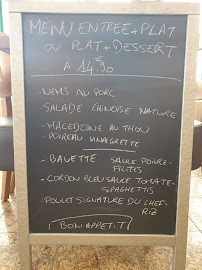 MENU ENTREE+PLAT
OU PLAT+DESSERT
A 14,90
- NEMS AU PORC
- SALADE CHINOISE NATURE
- MACEDOINE AU THON
- POIREAU VINAIGRETTE
- BAVETTE SAUCE POIVRE-
FRITES
- CORDON BLEU SAUCE TOMATE-
SPAGHETTIS
- POULET SIGNATURE DU CHEF-
RIZ
BON APPETIT